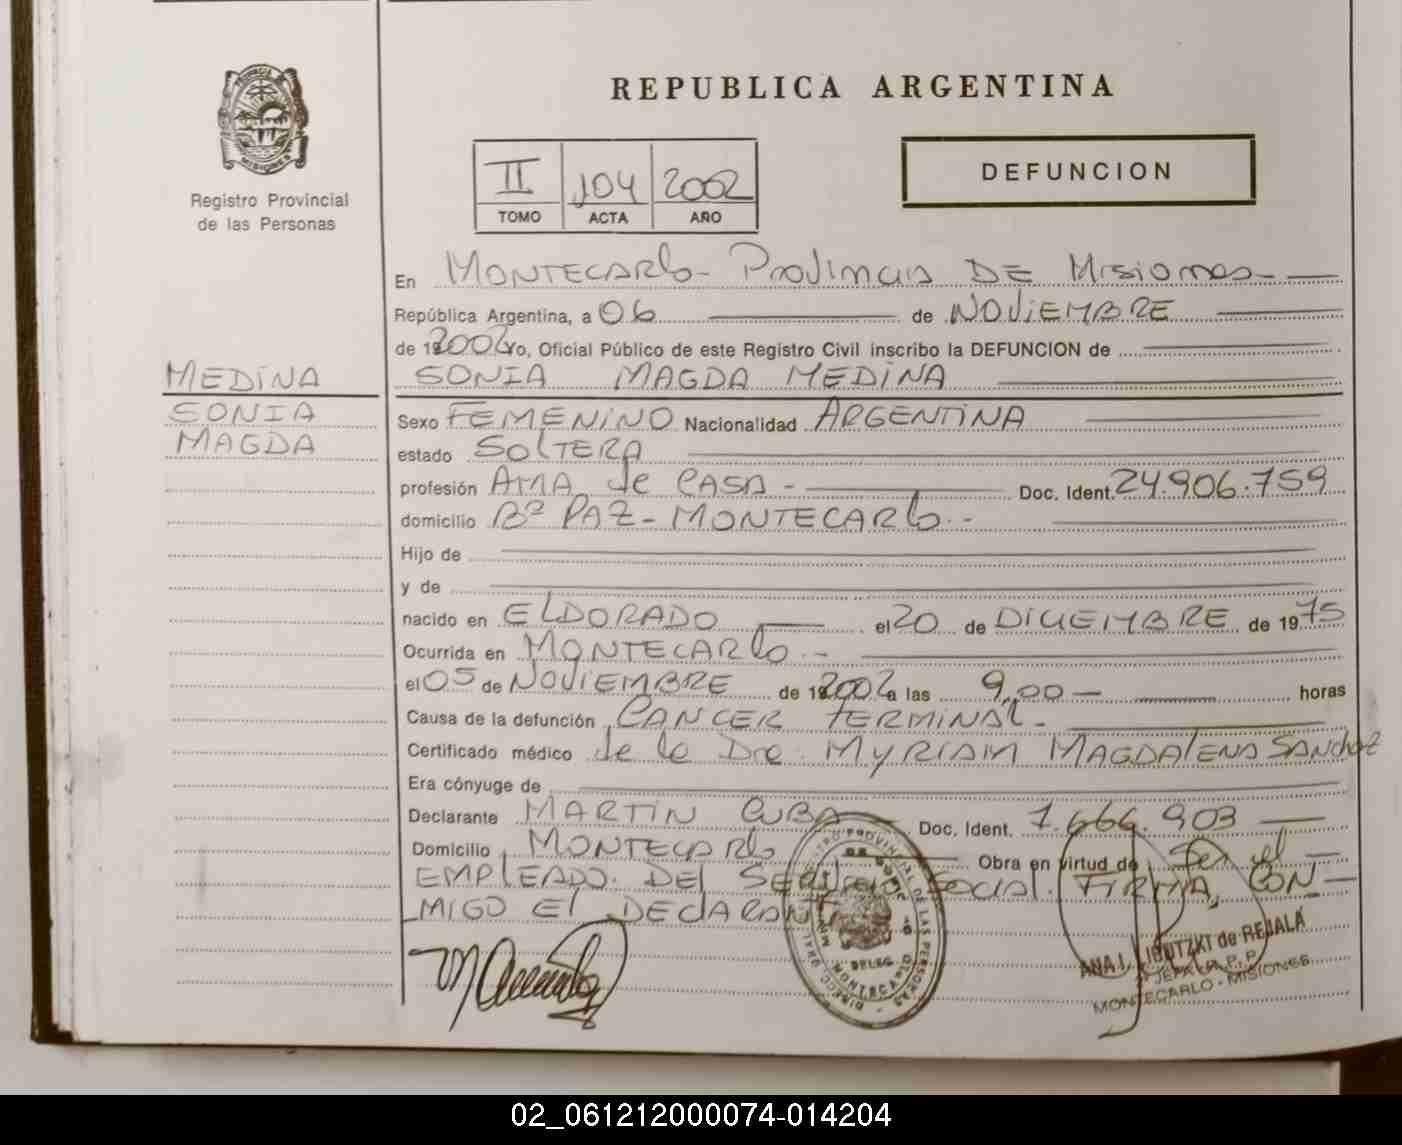 REPUBLICA ARGENTINA
PROVINCIA DE
MISIONES
Registro Provincial
de las Personas
II 104 2002
TOMO ACTA AÑO
DEFUNCION
En MONTECARLO - Provincia DE Misiones -
República Argentina, a 06 de NOVIEMBRE
de 2002 Yo, Oficial Público de este Registro Civil inscribo la DEFUNCION de
SONIA MAGDA MEDINA
MEDINA
SONIA
MAGDA
Sexo FEMENINO Nacionalidad ARGENTINA
estado SOLTERA
profesión AMA de CASA - Doc. Ident. 24.906.759
domicilio Bº PAZ - MONTECARLO.-
Hijo de
y de
nacido en ELDORADO el 20 de DICIEMBRE de 1975
Ocurrida en MONTECARLO.-
el 05 de NOVIEMBRE de 2002 a las 9,00 - horas
Causa de la defunción CANCER TERMINAL -
Certificado médico de la Dra. MYRIAM MAGDALENA SANCHEZ
Era cónyuge de
Declarante MARTIN CUBA - Doc. Ident. 7.664.903
Domicilio MONTECARLO Obra en virtud de Ser el
EMPLEADO DEL SERVICIO SOCIAL. FIRMA, CON-
MIGO EL DECLARANTE
PROVINCIAL DE LAS PERSONAS
DELEG.
MONTECARLO
ANA I. de REJALA
JEFA R.P.P.
MONTECARLO - MISIONES
02_061212000074-014204